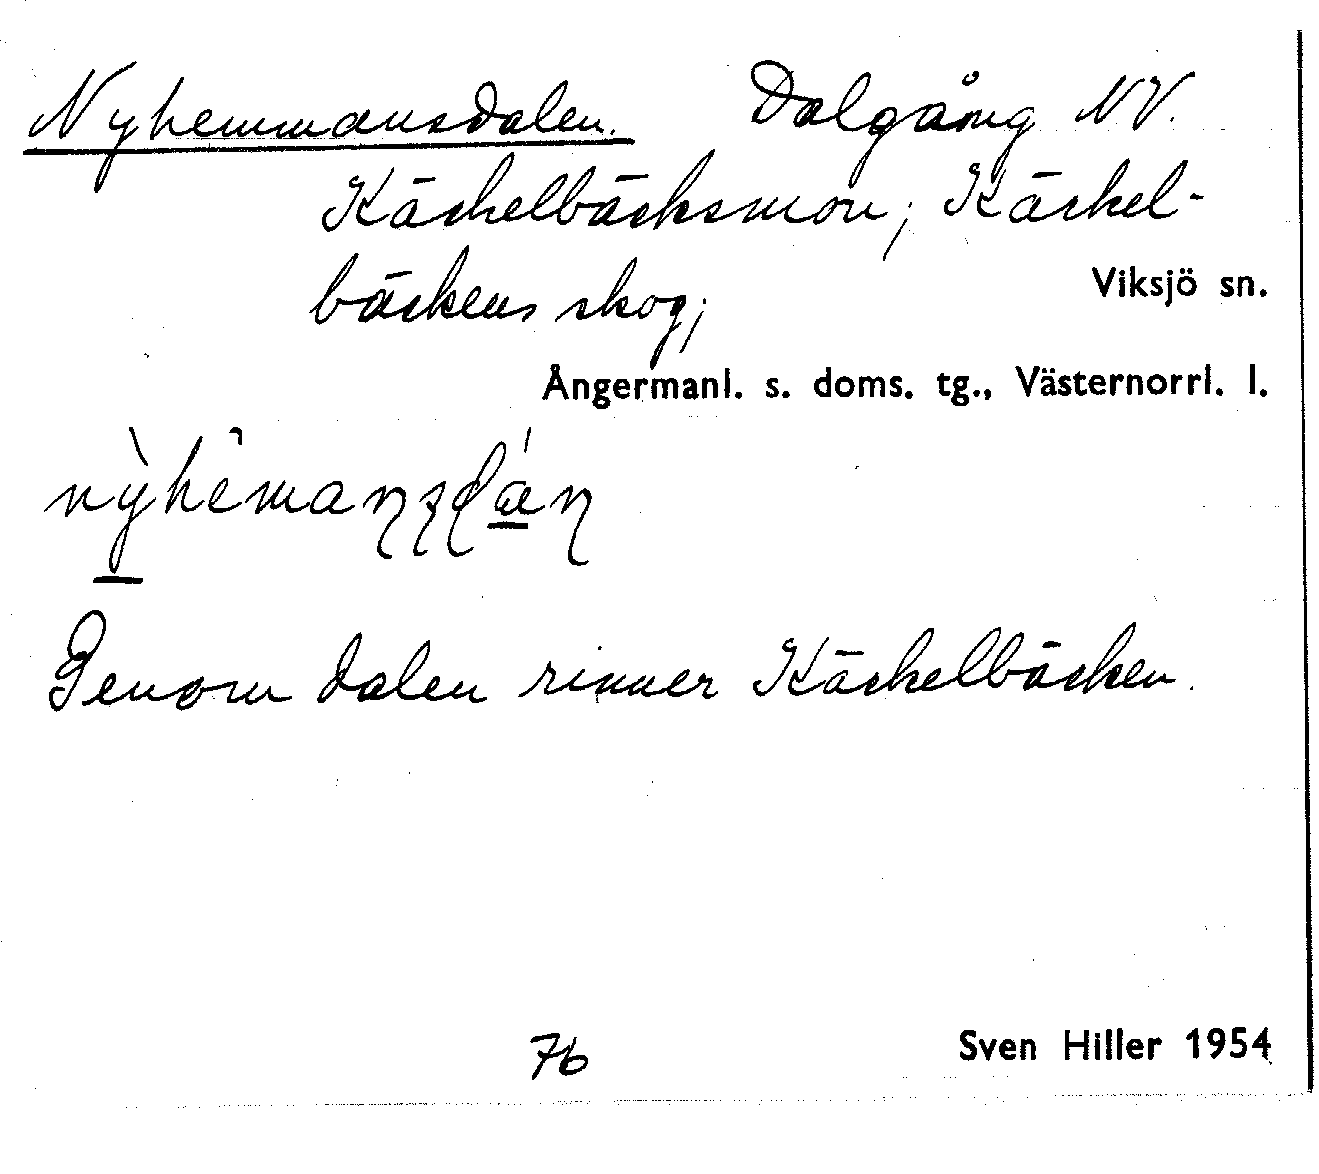 Nyhemmansdalen. Dalgång NV.
Käckelbäcksmon; Käckel-
bäckens skog;
Viksjö sn.
Ångermanl. s. doms. tg., Västernorrl. l.
Genom dalen rinner Käckelbäcken.
76
Sven Hiller 1954